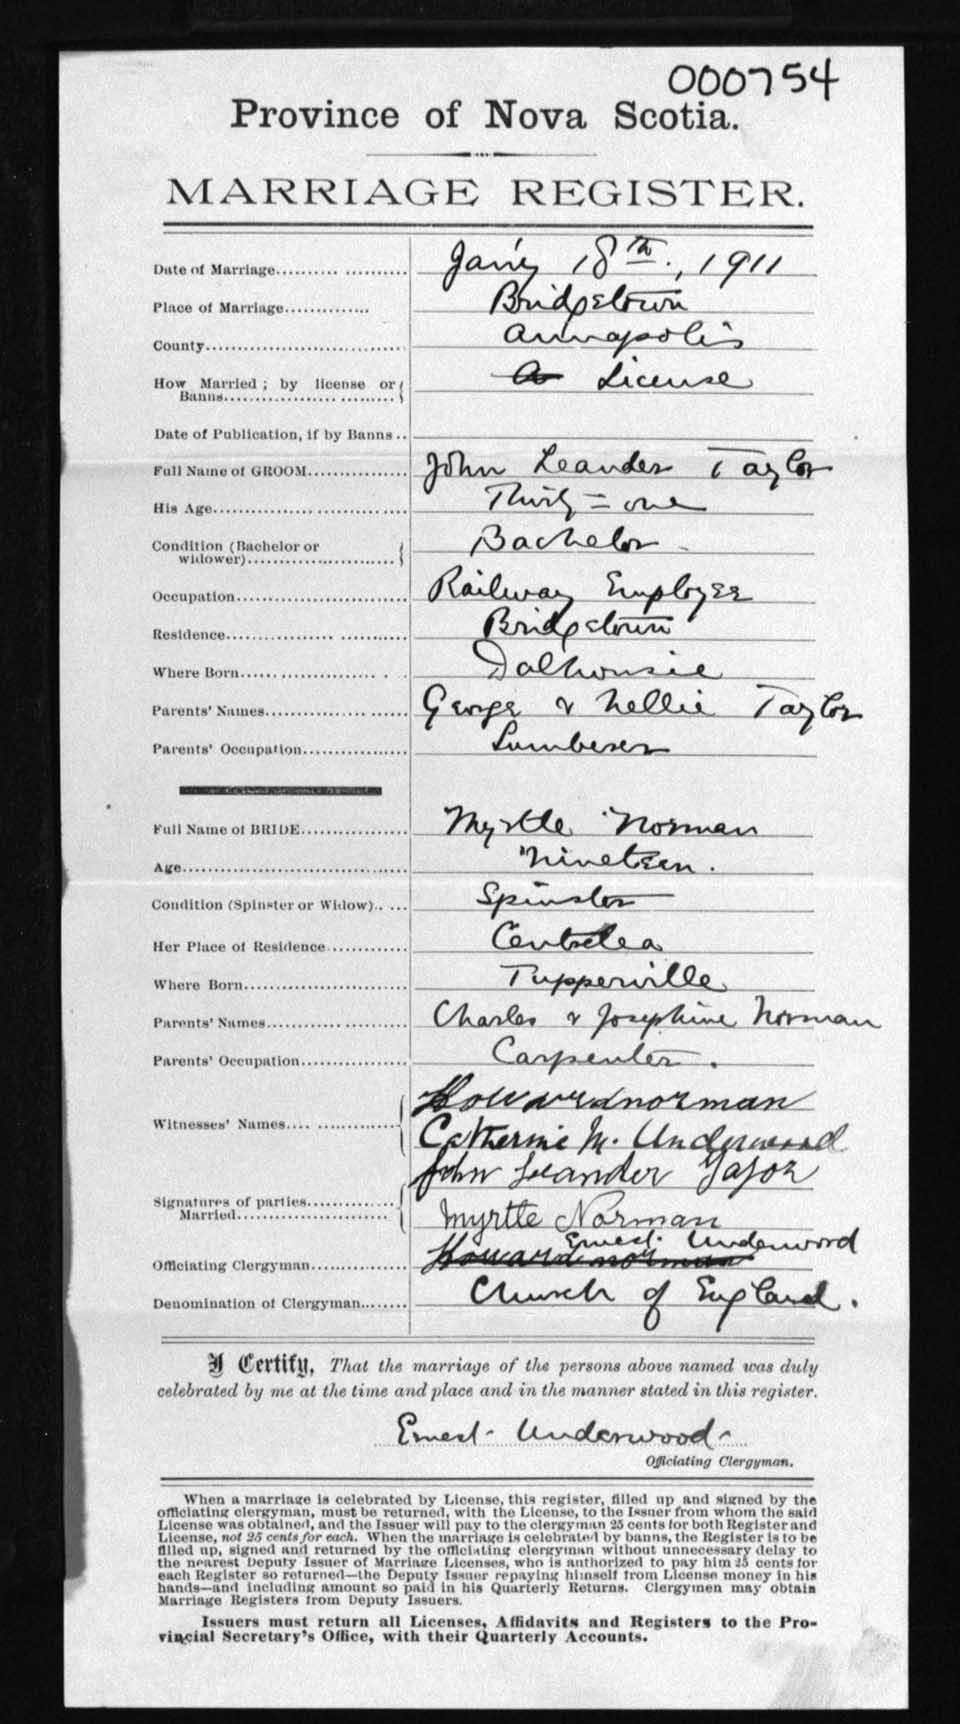 000754
Province of Nova Scotia.
MARRIAGE REGISTER.
Date of Marriage.......... ........... Jan'y 18th., 1911
Place of Marriage.............. Bridgetown
County............................... Annapolis
How Married; by license or License
Banns.................................
Date of Publication, if by Banns ..
Full Name of GROOM............... John Leander Taylor
His Age............................... Thirty=one
Condition (Bachelor or Bachelor
widower).......................
Occupation.......................... Railway Employee
Residence................ ........... Bridgetown
Where Born.......................... Dalhousie
Parents' Names..................... George & Nellie Taylor
Parents' Occupation................ Lumberer
Full Name of BRIDE................ Myrtle Norman
Age.................................... Nineteen.
Condition (Spinster or Widow).. ... Spinster
Her Place of Residence............. Centrelea
Where Born.......................... Tupperville
Parents' Names..................... Charles & Josephine Norman
Parents' Occupation................ Carpenter.
Howard norman
Witnesses' Names.... ..............
Catherine M. Underwood
John Leander Taylor
Signatures of parties..............
Married......................... Myrtle Norman
Ernest Underwood
Officiating Clergyman.............. Howard norman
Denomination of Clergyman........ Church of England.
I Certify, That the marriage of the persons above named was duly
celebrated by me at the time and place and in the manner stated in this register.
Ernest Underwood
Officiating Clergyman.
When a marriage is celebrated by License, this register, filled up and signed by the
officiating clergyman, must be returned, with the License, to the Issuer from whom the said
License was obtained, and the Issuer will pay to the clergyman 25 cents for both Register and
License, not 25 cents for each. When the marriage is celebrated by banns, the Register is to be
filled up, signed and returned by the officiating clergyman without unnecessary delay to
the nearest Deputy Issuer of Marriage Licenses, who is authorized to pay him 25 cents for
each Register so returned—the Deputy Issuer repaying himself from License money in his
hands—and including amount so paid in his Quarterly Returns. Clergymen may obtain
Marriage Registers from Deputy Issuers.
Issuers must return all Licenses, Affidavits and Registers to the Pro-
vincial Secretary's Office, with their Quarterly Accounts.